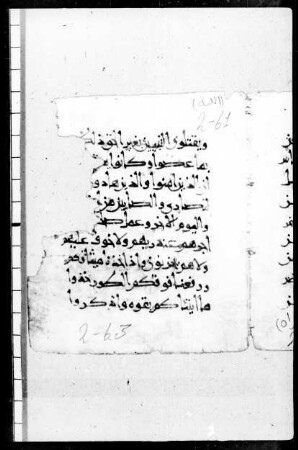 (البقرة)
2-61
ويقتلون النبيين بغير الحق ذلك
بما عصوا وكانوا
ان الذين امنوا والذين هادوا
والنصارى والصابين من
واليوم الاخر وعمل صلحا
اجرهم عند ربهم ولا خوف عليهم
ولا هم يحزنون واذ اخذنا ميثاقكم
ورفعنا فوقكم الطور خذوا
ما اتيناكم بقوه واذكروا
2-63